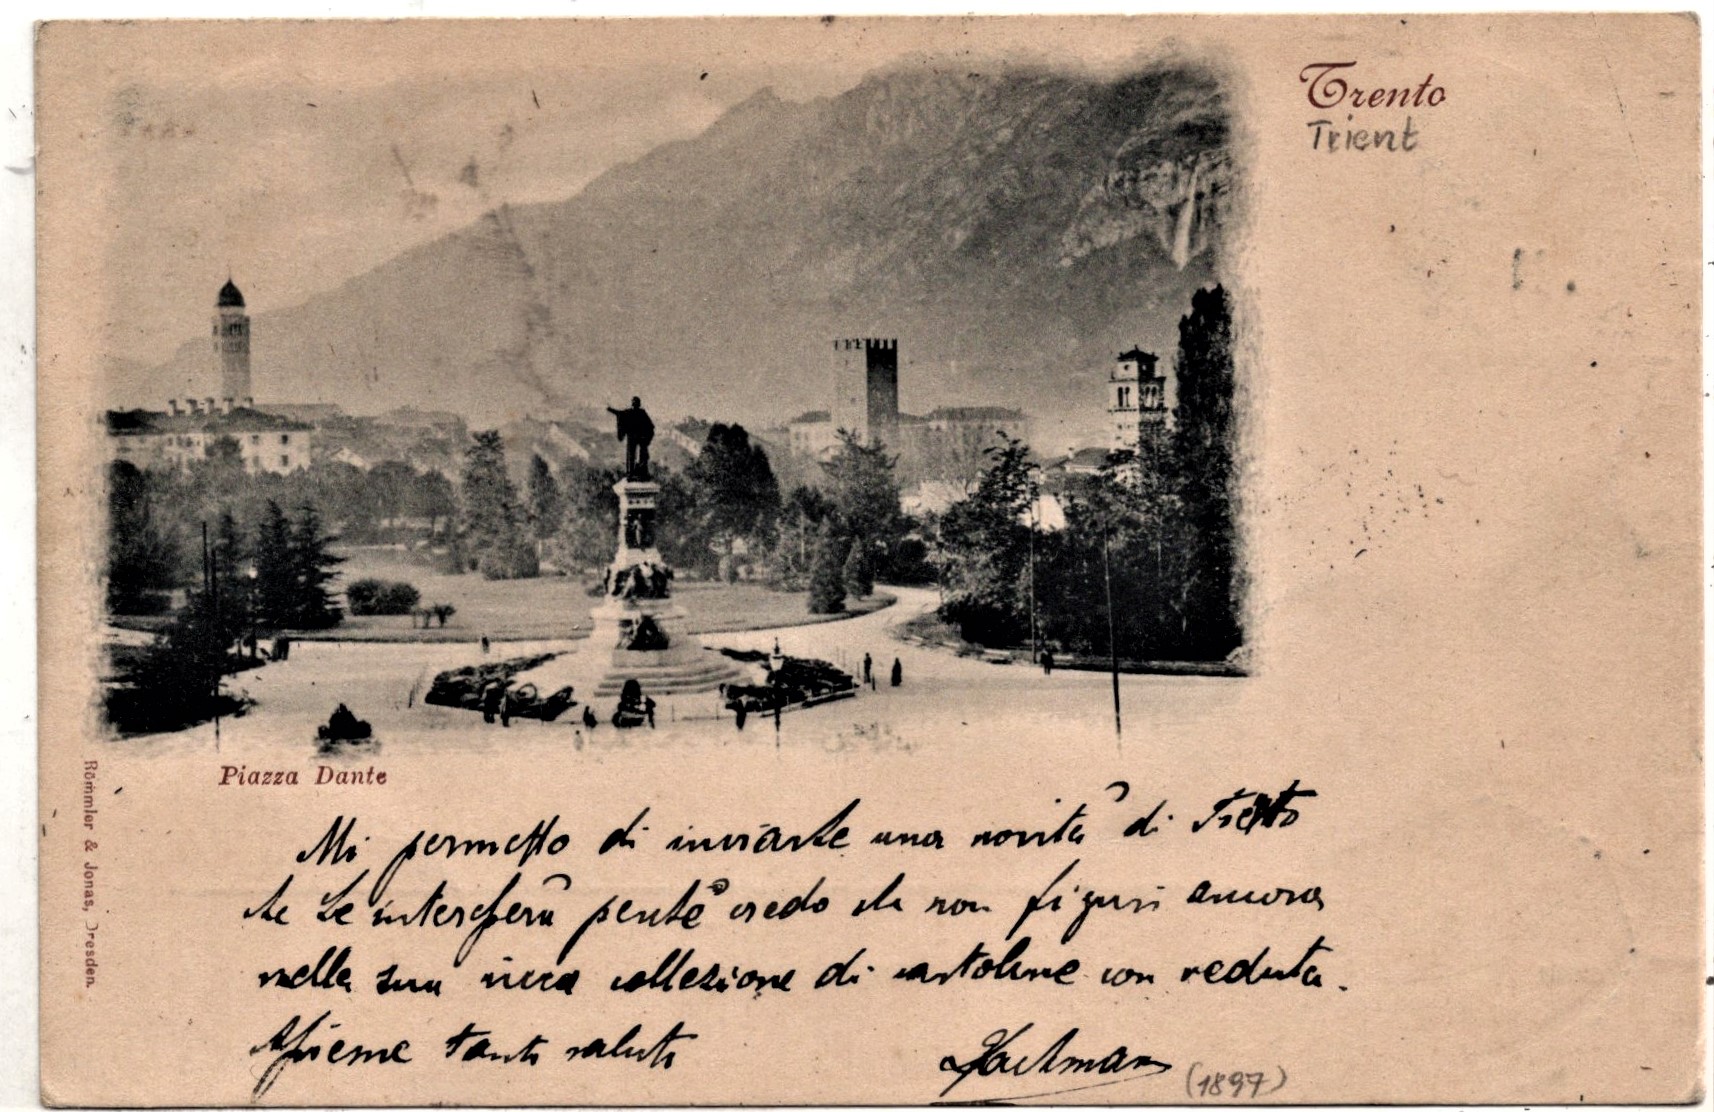 Trento
Trient
Piazza Dante
Römmler & Jonas, Dresden.
Mi permetto di inviarle una novità di Trento
che Le interesserà perchè credo che non figuri ancora
nella sua ricca collezione di cartoline con veduta.
Assieme tanti saluti
(1897)